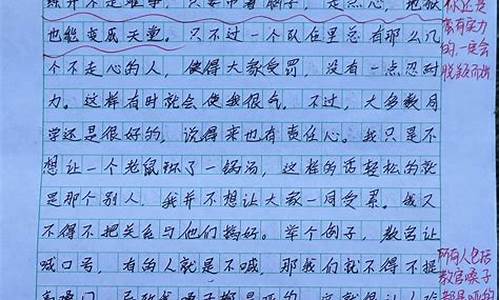 练并不是难事，只要带着脑子，走点心，地狱
也能变成天堂。只不过一个队伍里总有那么几
个不走心的人，使得大家受罚，没有一点忍耐
力。这样有时就会使我很气。不过，大多数同
学还是很好的，说得来也有责任心。我只是不
想让一个老鼠坏了一锅汤，这样的话轻松的就
是那个别人，我并不想让大家一同受累。我又
不得不把关系与他们搞好。举个例子，教官让
喊口号，有的人就是不喊，那我们就得不得不提
你还是
蛮有实力
的，一定会
脱颖而出
所有人包括
教官嗓子